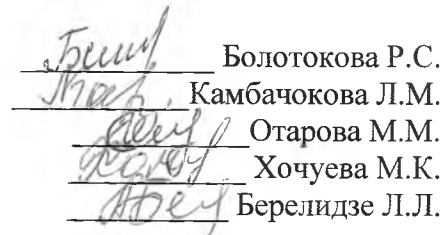 Болотокова Р.С.
Камбачокова Л.М.
Отарова М.М.
Хочуева М.К.
Берелидзе Л.Л.